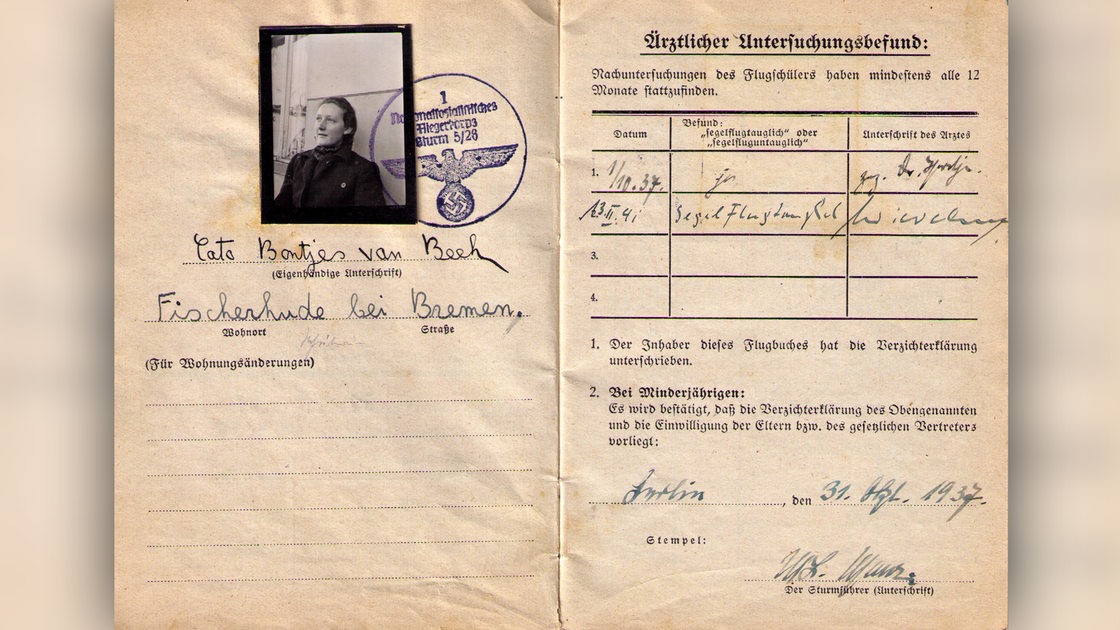 1
Nationalsozialistisches
Fliegerkorps
Sturm 5/28
Cato Bontjes van Beek
(Eigenhändige Unterschrift)
Fischerhude bei Bremen.
Wohnort Straße
(Für Wohnungsänderungen)
Ärztlicher Untersuchungsbefund:
Nachuntersuchungen des Flugschülers haben mindestens alle 12
Monate stattzufinden.
Datum
Befund:
„segelflugtauglich“ oder
„segelfluguntauglich“
Unterschrift des Arztes
1. 1/10.37. ja gez. Dr.
Segelflugtauglich
3.
4.
1. Der Inhaber dieses Flugbuches hat die Verzichterklärung
unterschrieben.
2. Bei Minderjährigen:
Es wird bestätigt, daß die Verzichterklärung des Obengenannten
und die Einwilligung der Eltern bzw. des gesetzlichen Vertreters
vorliegt:
Berlin, den 31. Okt. 1937.
Stempel:
Der Sturmführer (Unterschrift)